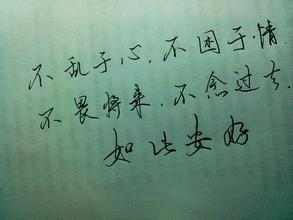 不乱于心，不困于情.
不畏将来，不念过去.
如此安好